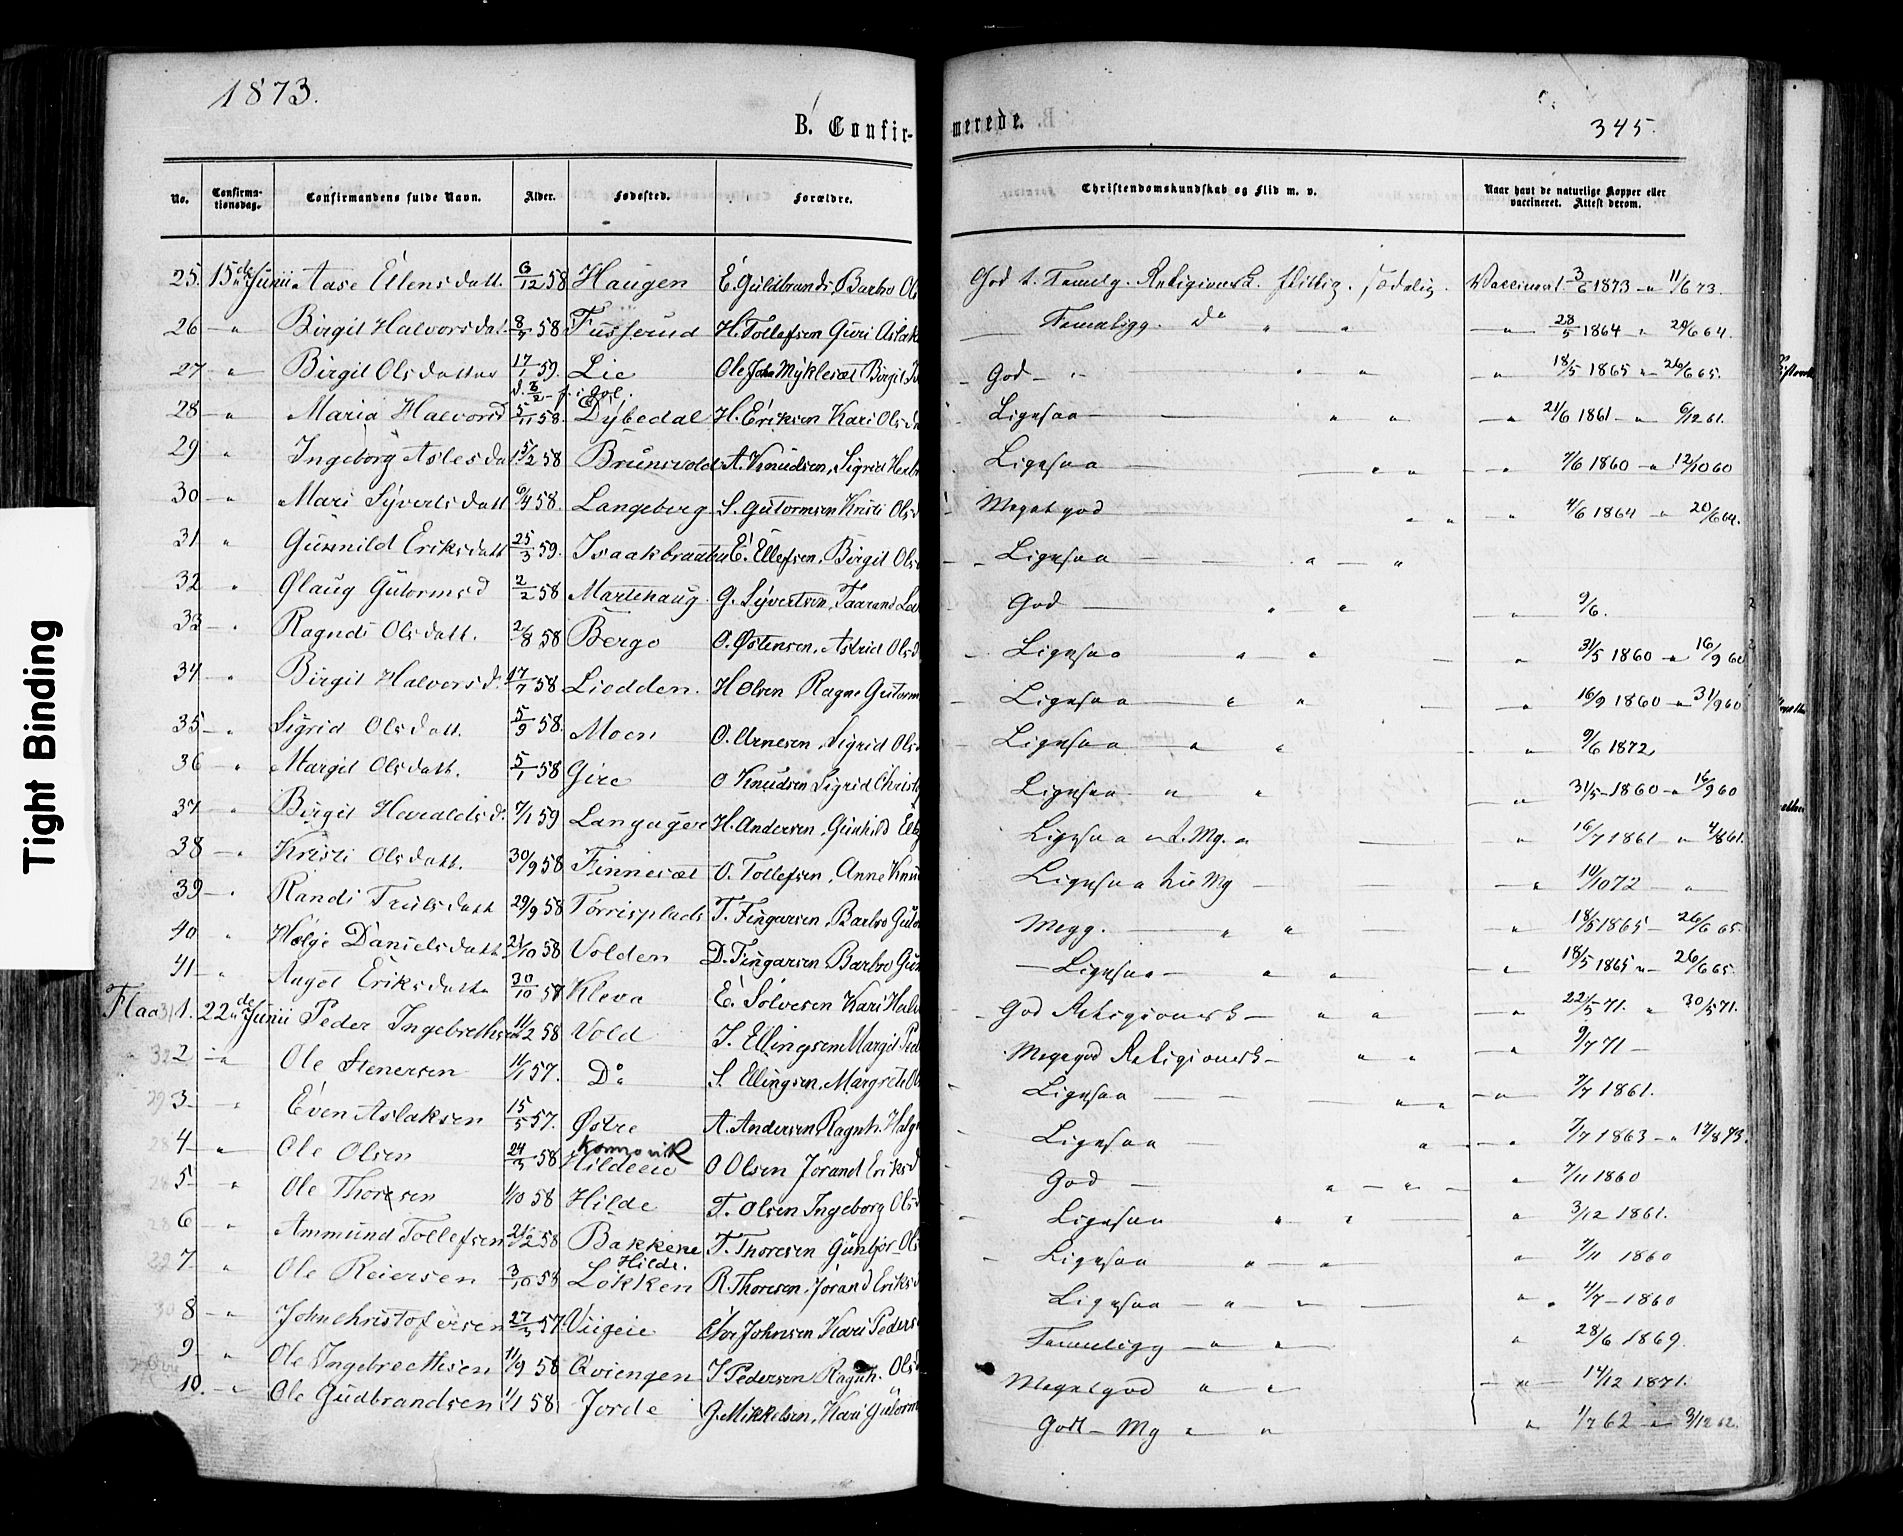 1873.
B. Confir-
merede.
345.
No. Confirma-tionsdag. Confirmandens fulde Navn. Alder. Fødested. Forældre. Christendomskundskab og Flid m. v. Naar havt de naturlige Kopper eller vaccineret. Attest derom.
25. 15de Junii Aase Ellensdatt. 6/12 58 Haugen E. Guldbrands, Barbro Ols God t. Religionsk. flittig. sædelig. Vaccineret 3/6 1873 " 11/6 73.
26 " Birgit Halvorsdat 8/7 58 H. Tollefsen Guri Aslak Do " " " 28/5 1864 " 20/6 64.
27 " Birgit Olsdatter 17/1 59. Lie Ole John Myklesæt Birgit God " " " " 18/5 1865 " 26/6 65.
28 " Maria Halvorsd 5/11 58. Dybedal H. Eriksen Kari Olsd Ligesaa " " " 21/6 1861 " 6/12 61.
29 " Ingeborg Aslesda 15/2 58 Brunsvold A. Knudsen, Sigrid Ligesaa " " " 7/6 1860 " 12/10 60
30 " Mari Syvertsdatt 6/4 58. Langeberg S. Gutormsen Kristi Olsd Meget god " " " 4/6 1864 " 20/6 64.
31 " Gunnild Eriksdatt 25/3 59. Isaakbraaten E. Ellefsen, Birgit Ols Ligesaa " "
32 " Olaug Gutormsd 2/2 58 Martehaug G. Syvertsen, Taarand God " " " 9/6.
33 " Ragndi Olsdatt. 2/8 58 Bergo O. Østensen, Astrid Olsd Ligesaa " " " 31/5 1860 " 16/9 60
34 " Birgit Halvorsd. 17/7 58 Liodden. H Olsen Ragne Gutorm Ligesaa " " " 16/9 1860 " 31/9 60
35 " Sigrid Olsdatt. 5/9 58. Moen O. Arnesen, Sigrid Ols Ligesaa " " " 9/6 1872
36 " Margit Olsdatt. 5/1 58 Gire O Knudsen Sigrid Christ Ligesaa " " " 31/5 1860 " 16/9 60
37 " Birgit Haraldsd. 7/1 59 Langager H. Andersen, Gunhild Ligesaa " Mg. " " 16/7 1861 "
38 " Kristi Olsdatt. 30/9 58 Finnesæt O. Tollefsen, Anne Knu Ligesaa Mg " 10/10 72 "
39 " Randi Trulsdatt 29/9 58 Torrisplads T. Fingarsen, Barbro Guto Megg. " " " 18/5 1865 26/6 65.
40 " Helge Danielsdatt 21/10 58 Volden D. Fingarsen Barbro Gun Ligesaa " " " 18/5 1865 " 26/6 65.
41 " Aagot Eriksdatte 30/10 58 Kleva E. Sølvesen Kari Halv God Religionsk " " " 22/5 71. " 30/5 71.
Flaa 1. 22de Junii Peder Ingebrethsen 11/2 58 Vold I. Ellingsen Margit Ped Megegod Religionsk " " " 9/7 71
2 " Ole Stenersen 11/1 57. Do S. Ellingsen, Margrethe Ligesaa " " " 7/7 1861.
3 " Even Aslaksen 15/5 57. Østre A. Andersen Ragnh. Halg Ligesaa " " 7/7 1863 "
4 " Ole Olsen 24/3 58 Konnovik
Hildeeie O Olsen Jorand Eriksd God " " " 7/11 1860
5 " Ole Thoresen 1/10 58 Hilde T. Olsen Ingeborg Ols Ligesaa " " " 3/12 1861.
6 " Ammund Tollefsen 21/2 58 Bakkene T. Thoresen Gunbjør Ols Ligesaa " " " 7/11 1860
7 " Ole Reiersen 3/10 58 Hilde.
Løkken R Thoresen. Jorand Eriksd Ligesaa " " " 4/7 1860
8 " John Christofersen 27/3 57. Vigeie Johnsen Kari Peders " " " 28/6 1869.
9 " Ole Ingebrethsen 11/9 58 Qviengen I Pedersen Ragnh. Ols Megetgod " " " 14/12 1871.
10. " Ole Gudbrandsen 1/1 58 Jorde G. Mikkelsen, Kari Gutorm Godt Mg " " " 1/7 62 " 3/12 62.
Tight Binding